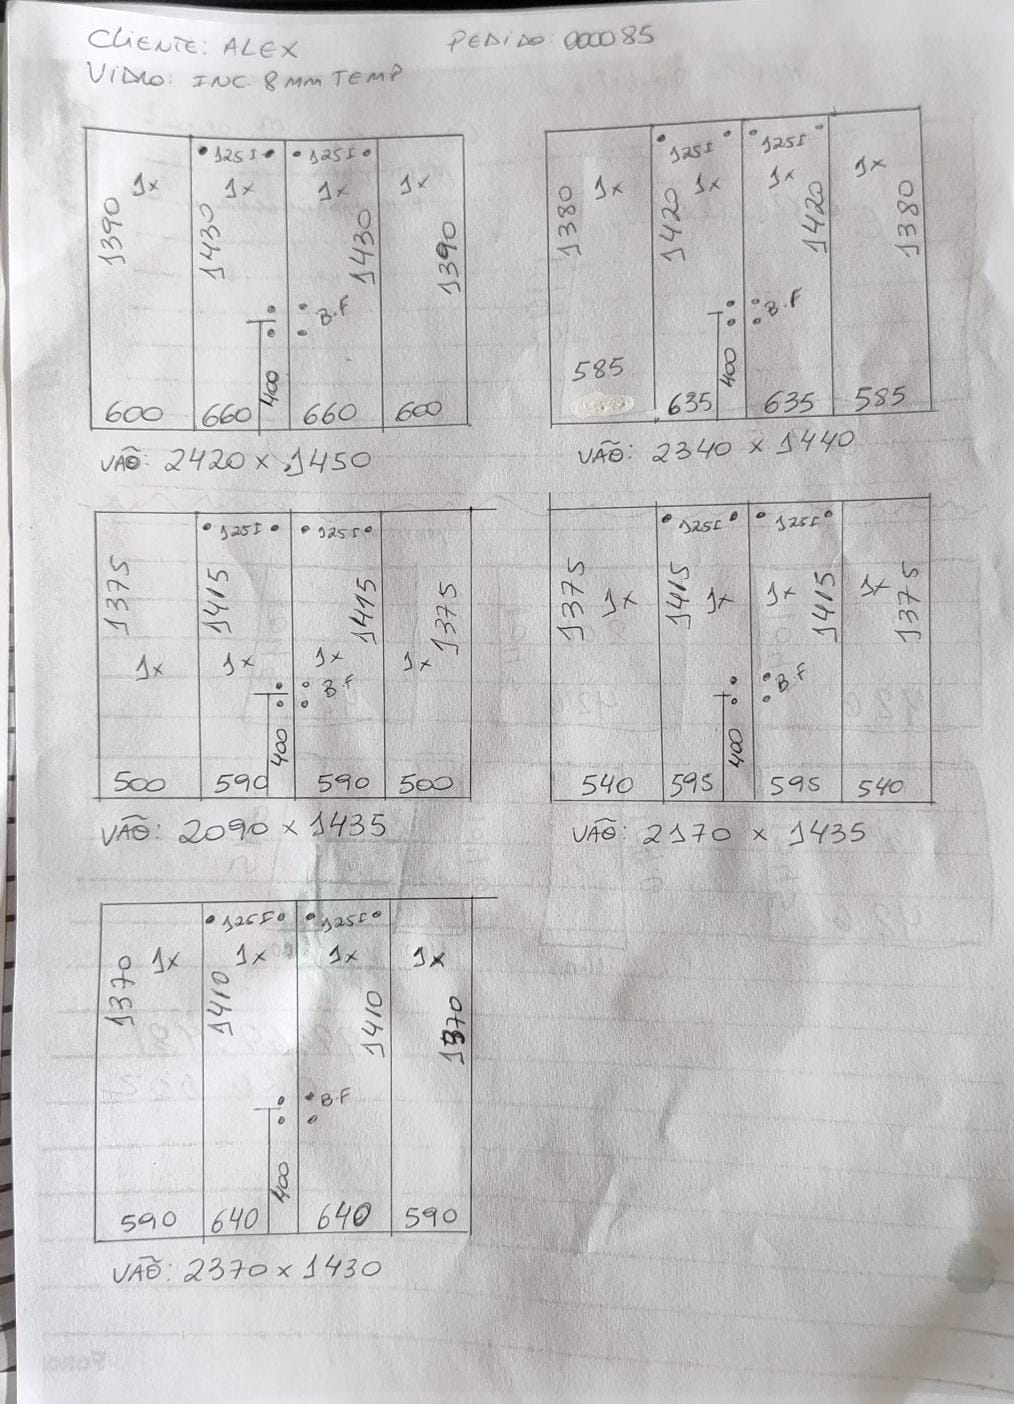 CLIENTE: ALEX PEDIDO: 000085
VIDRO: INC. 8MM TEMP
125I 125I
1x 1x 1x 1x
1390 1430 1430 1390
B.F
400
600 660 660 600
VÃO: 2420 x 1450
125I 125I
1x 1x 1x 1x
1380 1420 1420 1380
B.F
400
585 635 635 585
VÃO: 2340 x 1440
125I 125I
1375 1415 1415 1375
1x 1x 1x 1x
B.F
400
500 590 590 500
VÃO: 2090 x 1435
125I 125I
1375 1415 1415 1375
1x 1x 1x 1x
B.F
400
540 595 595 540
VÃO: 2170 x 1435
125I 125I
1x 1x 1x 1x
1370 1410 1410 1370
B.F
400
590 640 640 590
VÃO: 2370 x 1430